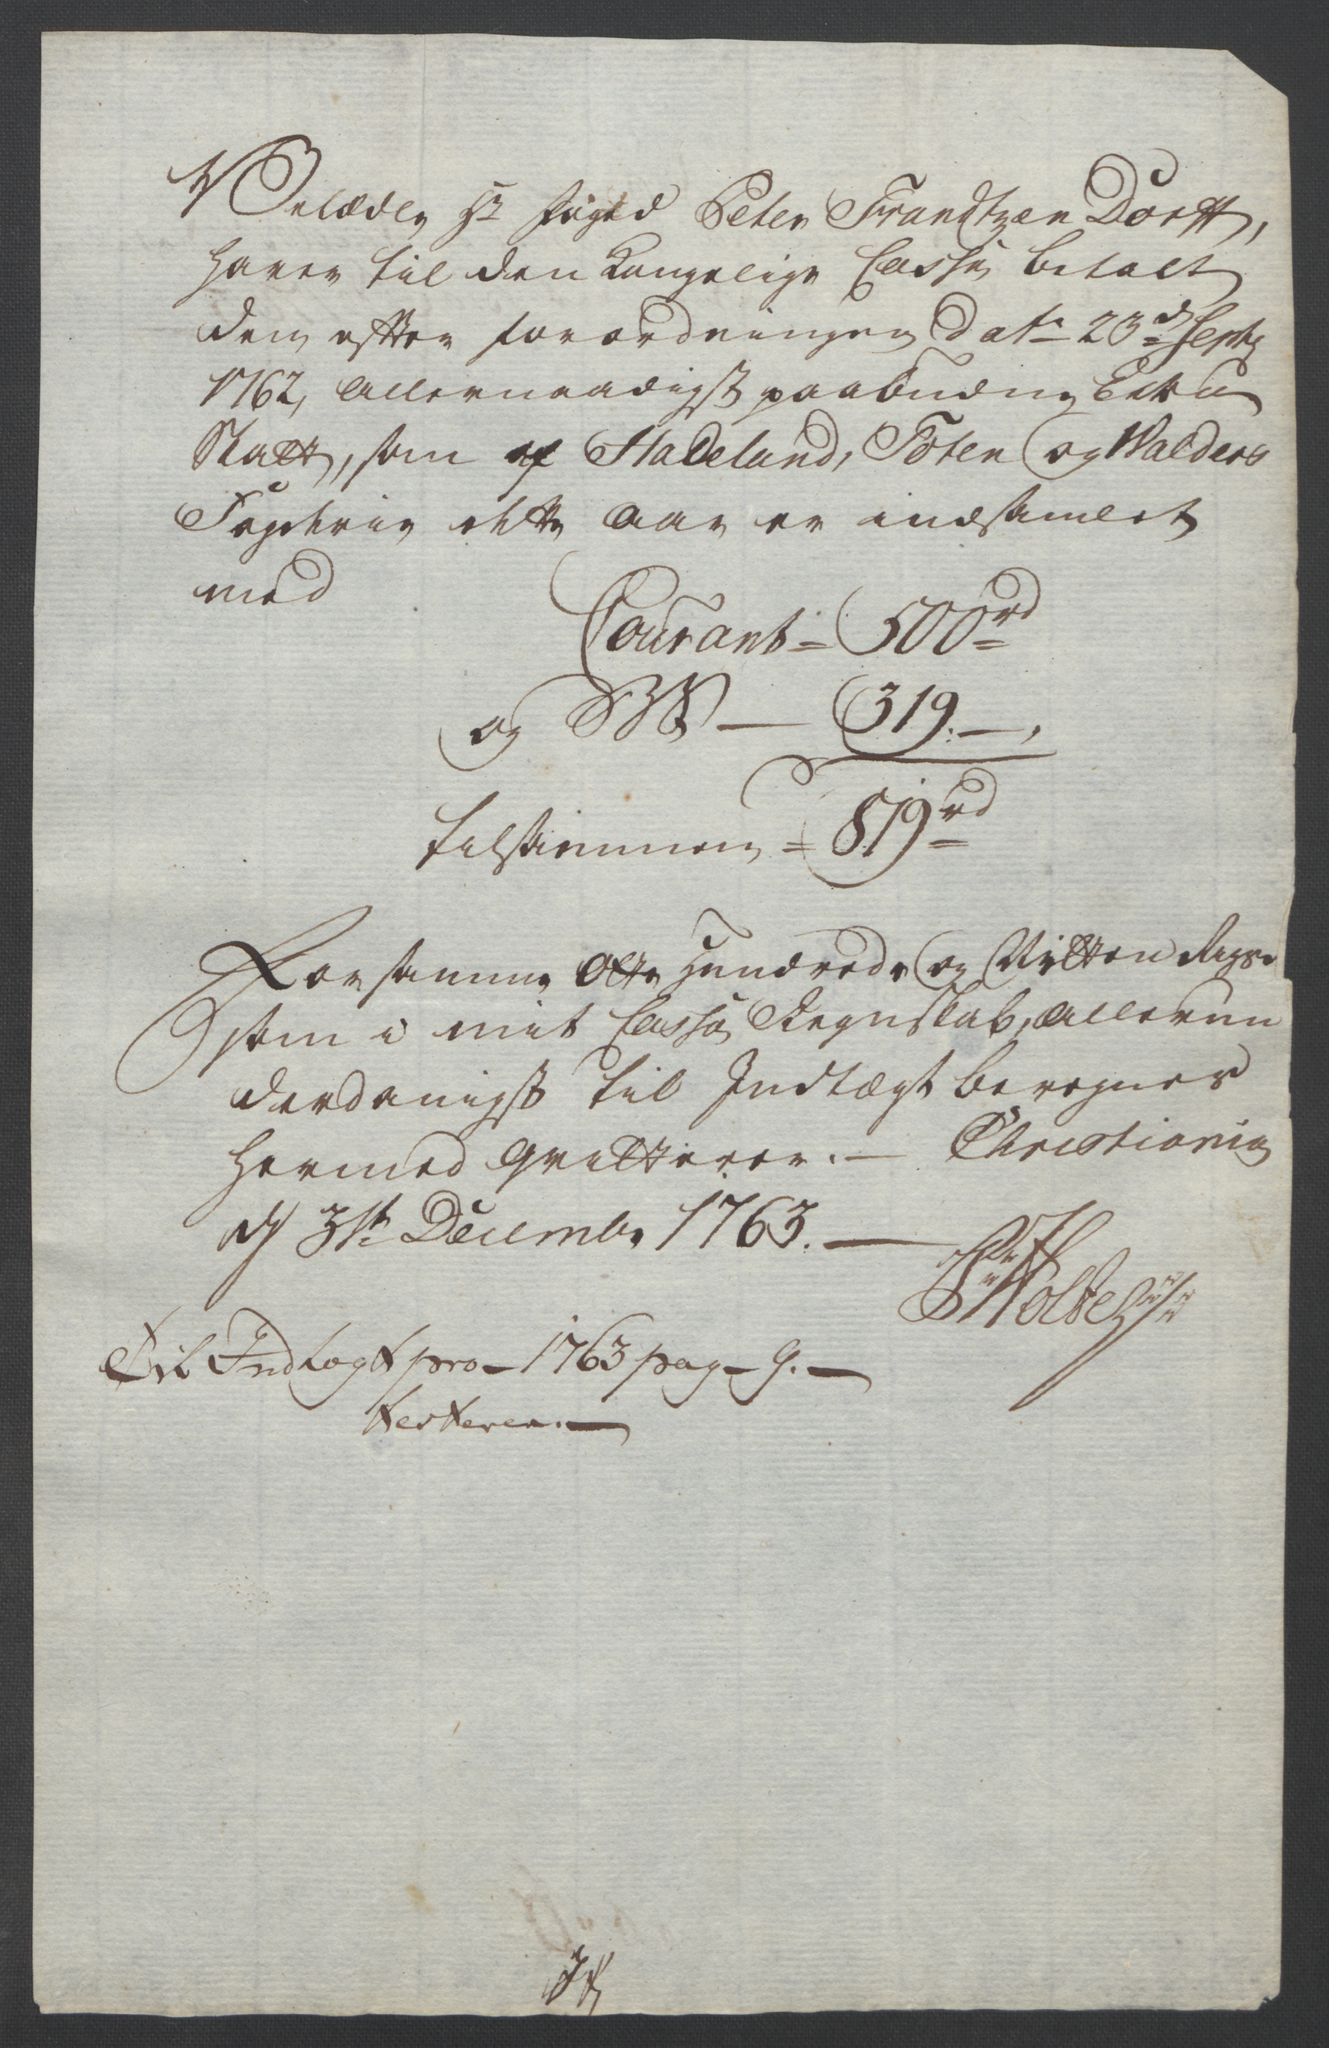 Velædle Hr Foged Peter Frandtzen Dorff,
haver til den Kongelige Cassa betalt
den efter forordningen Dat. 23d Septbr
1762, allernaadigst paabudne Extra
Skatt, som af Hadeland, Toten og Walders
Fogderie dette aar er indsamlet
med
Courant = 500 rd =
og B — 319. —,
tilsammen = 819 rd =
Før samme Otte Hundrede og Nitten Rigsd
som i mit Cassa Regnskab, allerun
derdanigst til Indtægt beregnes
hermed qvitterer. — Christiania
d 31te Decembr 1763. —
Holde
Til Indtægt pro — 1763 pag — 9. —
testerer. —